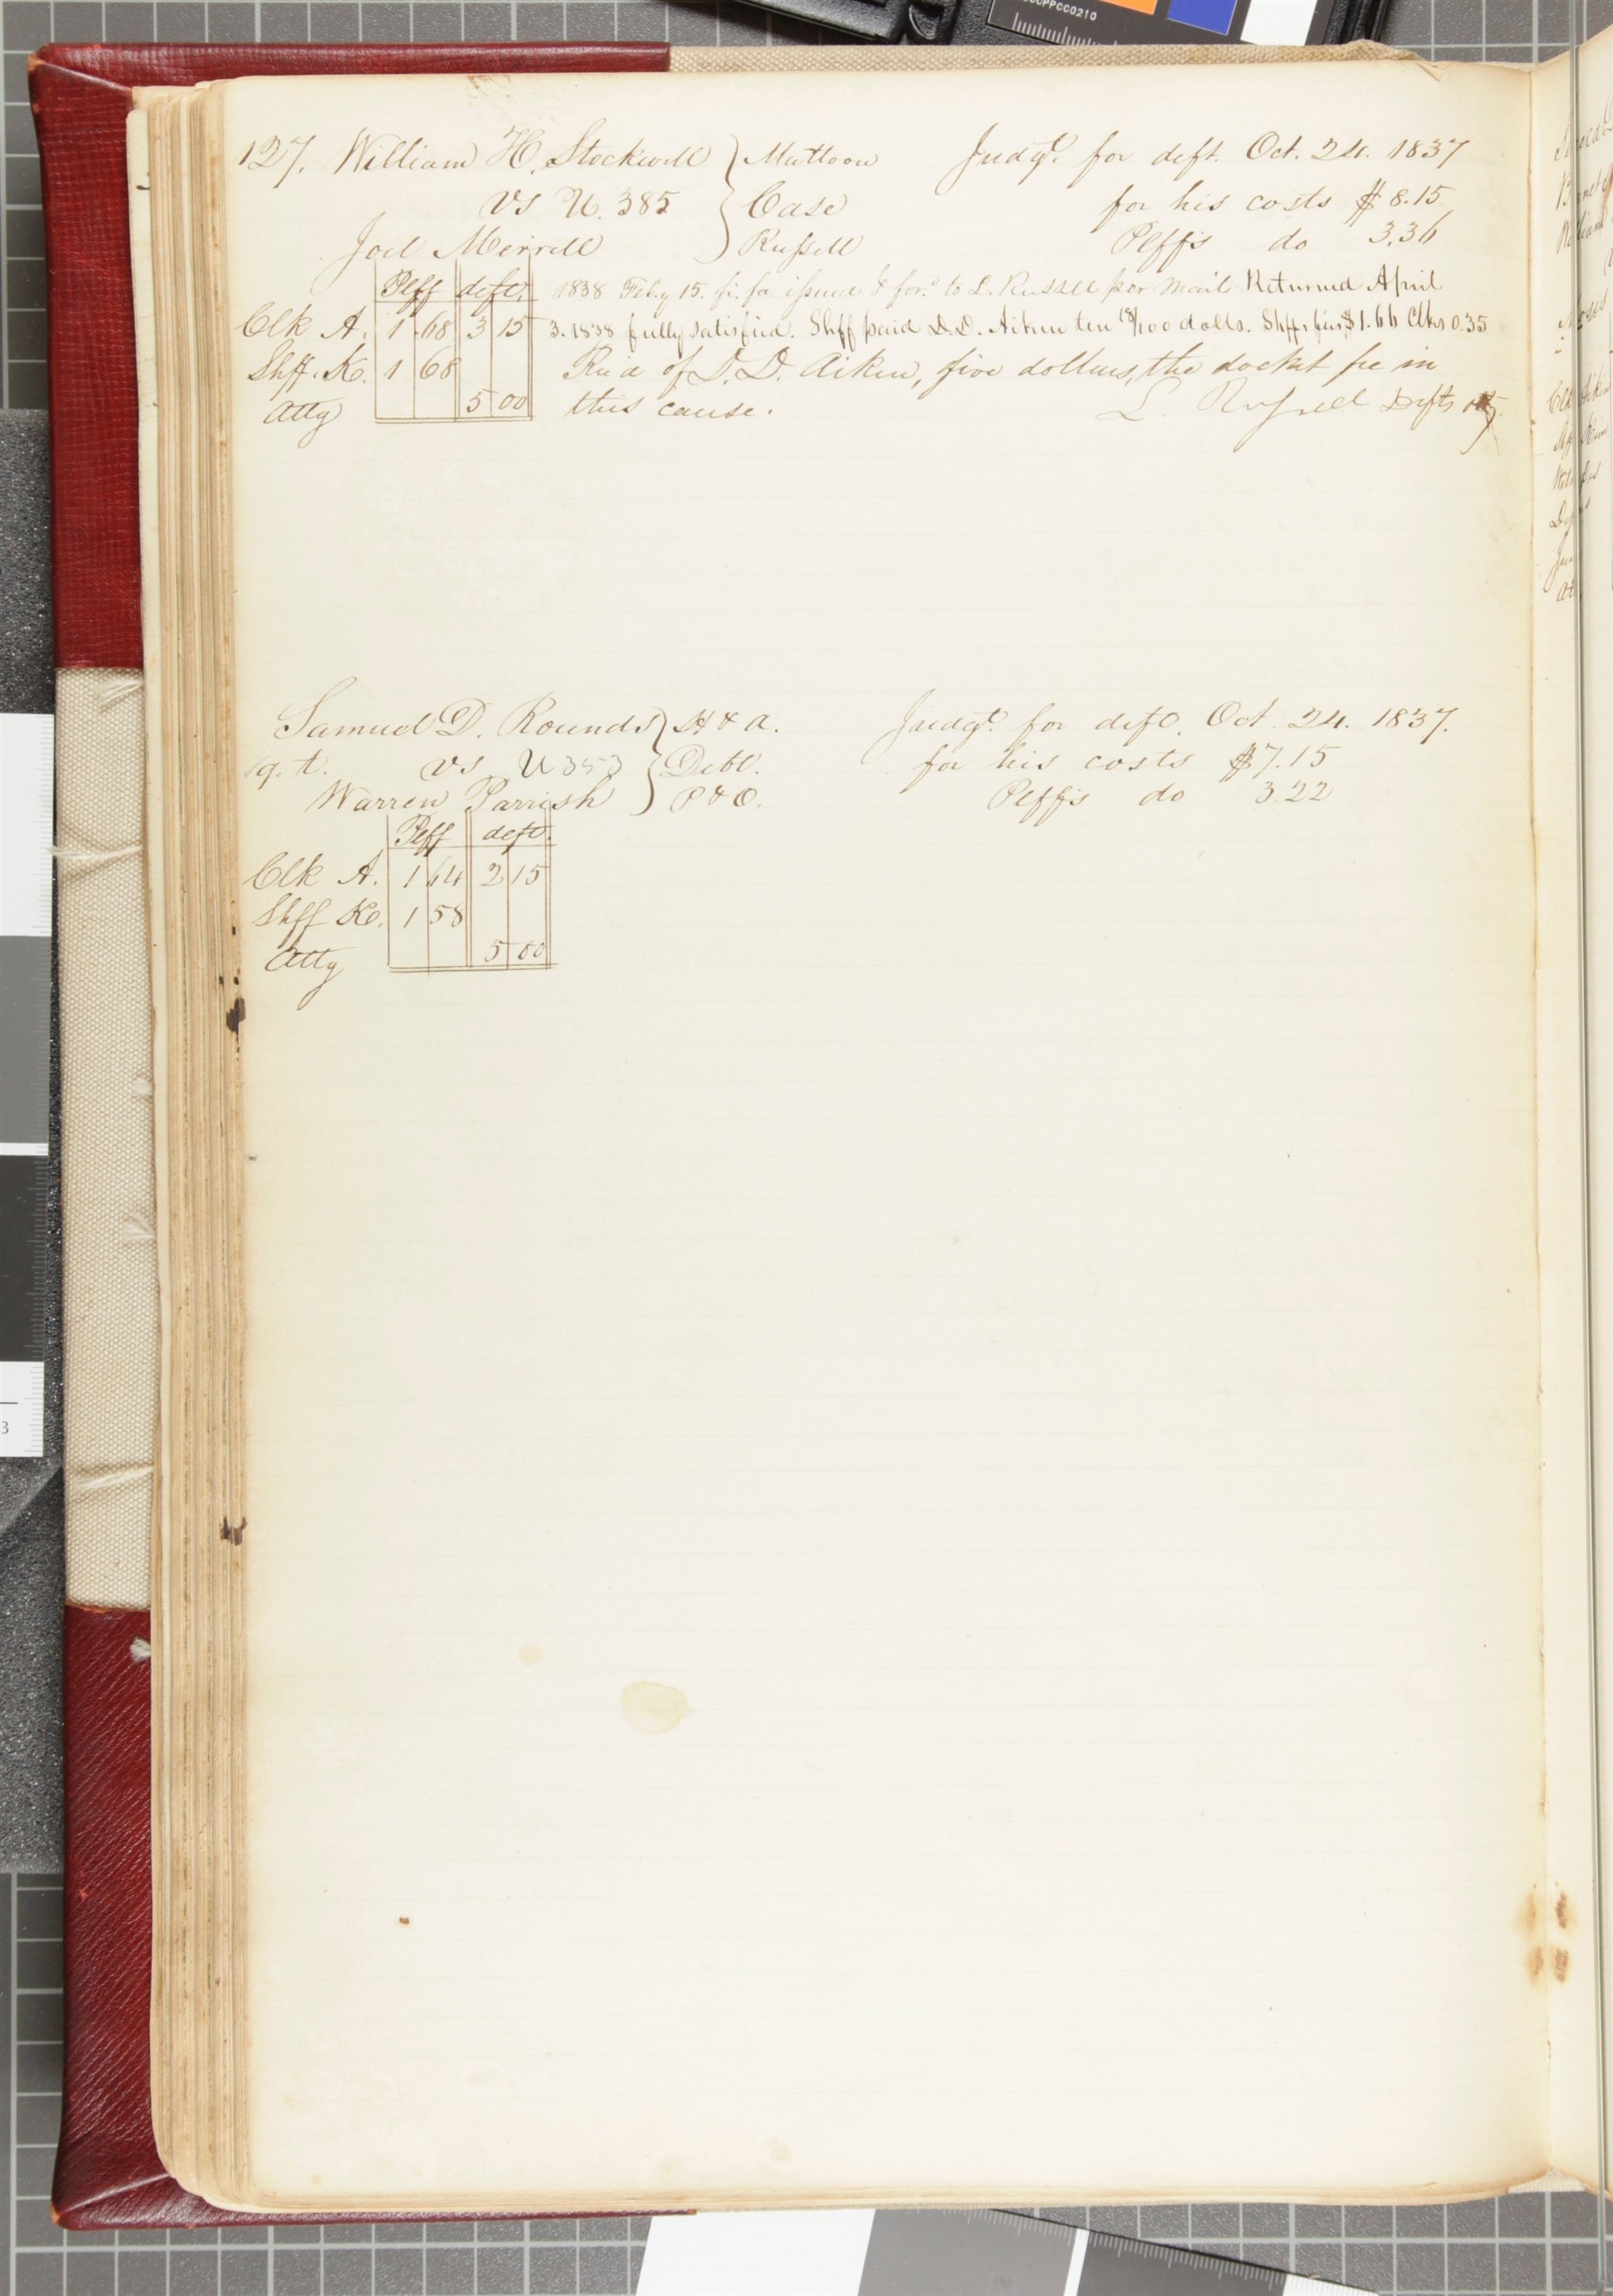 127. William H. Stockwell } Mattoon Judgt. for deft. Oct. 24. 1837
vs U. 385 } Case for his costs $8.15
Joel Merrell } Russell Plffs do 3.36
Plff deft. 1838 Feby 15. fi. fa. issued & ford. to L. Russell per Mail Returned April
Clk A. 1 68 3 15 3. 1838 fully satisfied. Shff paid D. D. Aiken ten 18/100 dolls. Shffs fees $1.66 Clks 0.35
Shff. K. 1 68 Rec'd of D. D. Aiken, five dollars, the docket fee in
Atty 5 00 this cause. L. Russell Defts atty.
Samuel D. Rounds } H & A. Judgt. for deft. Oct. 24. 1837.
q. t. vs U 353 } Debt. for his costs $7.15
Warren Parrish } P & O. Plffs do 3.22
Plff deft.
Clk A. 1 64 2 15
Shff K. 1 58
Atty 5 00